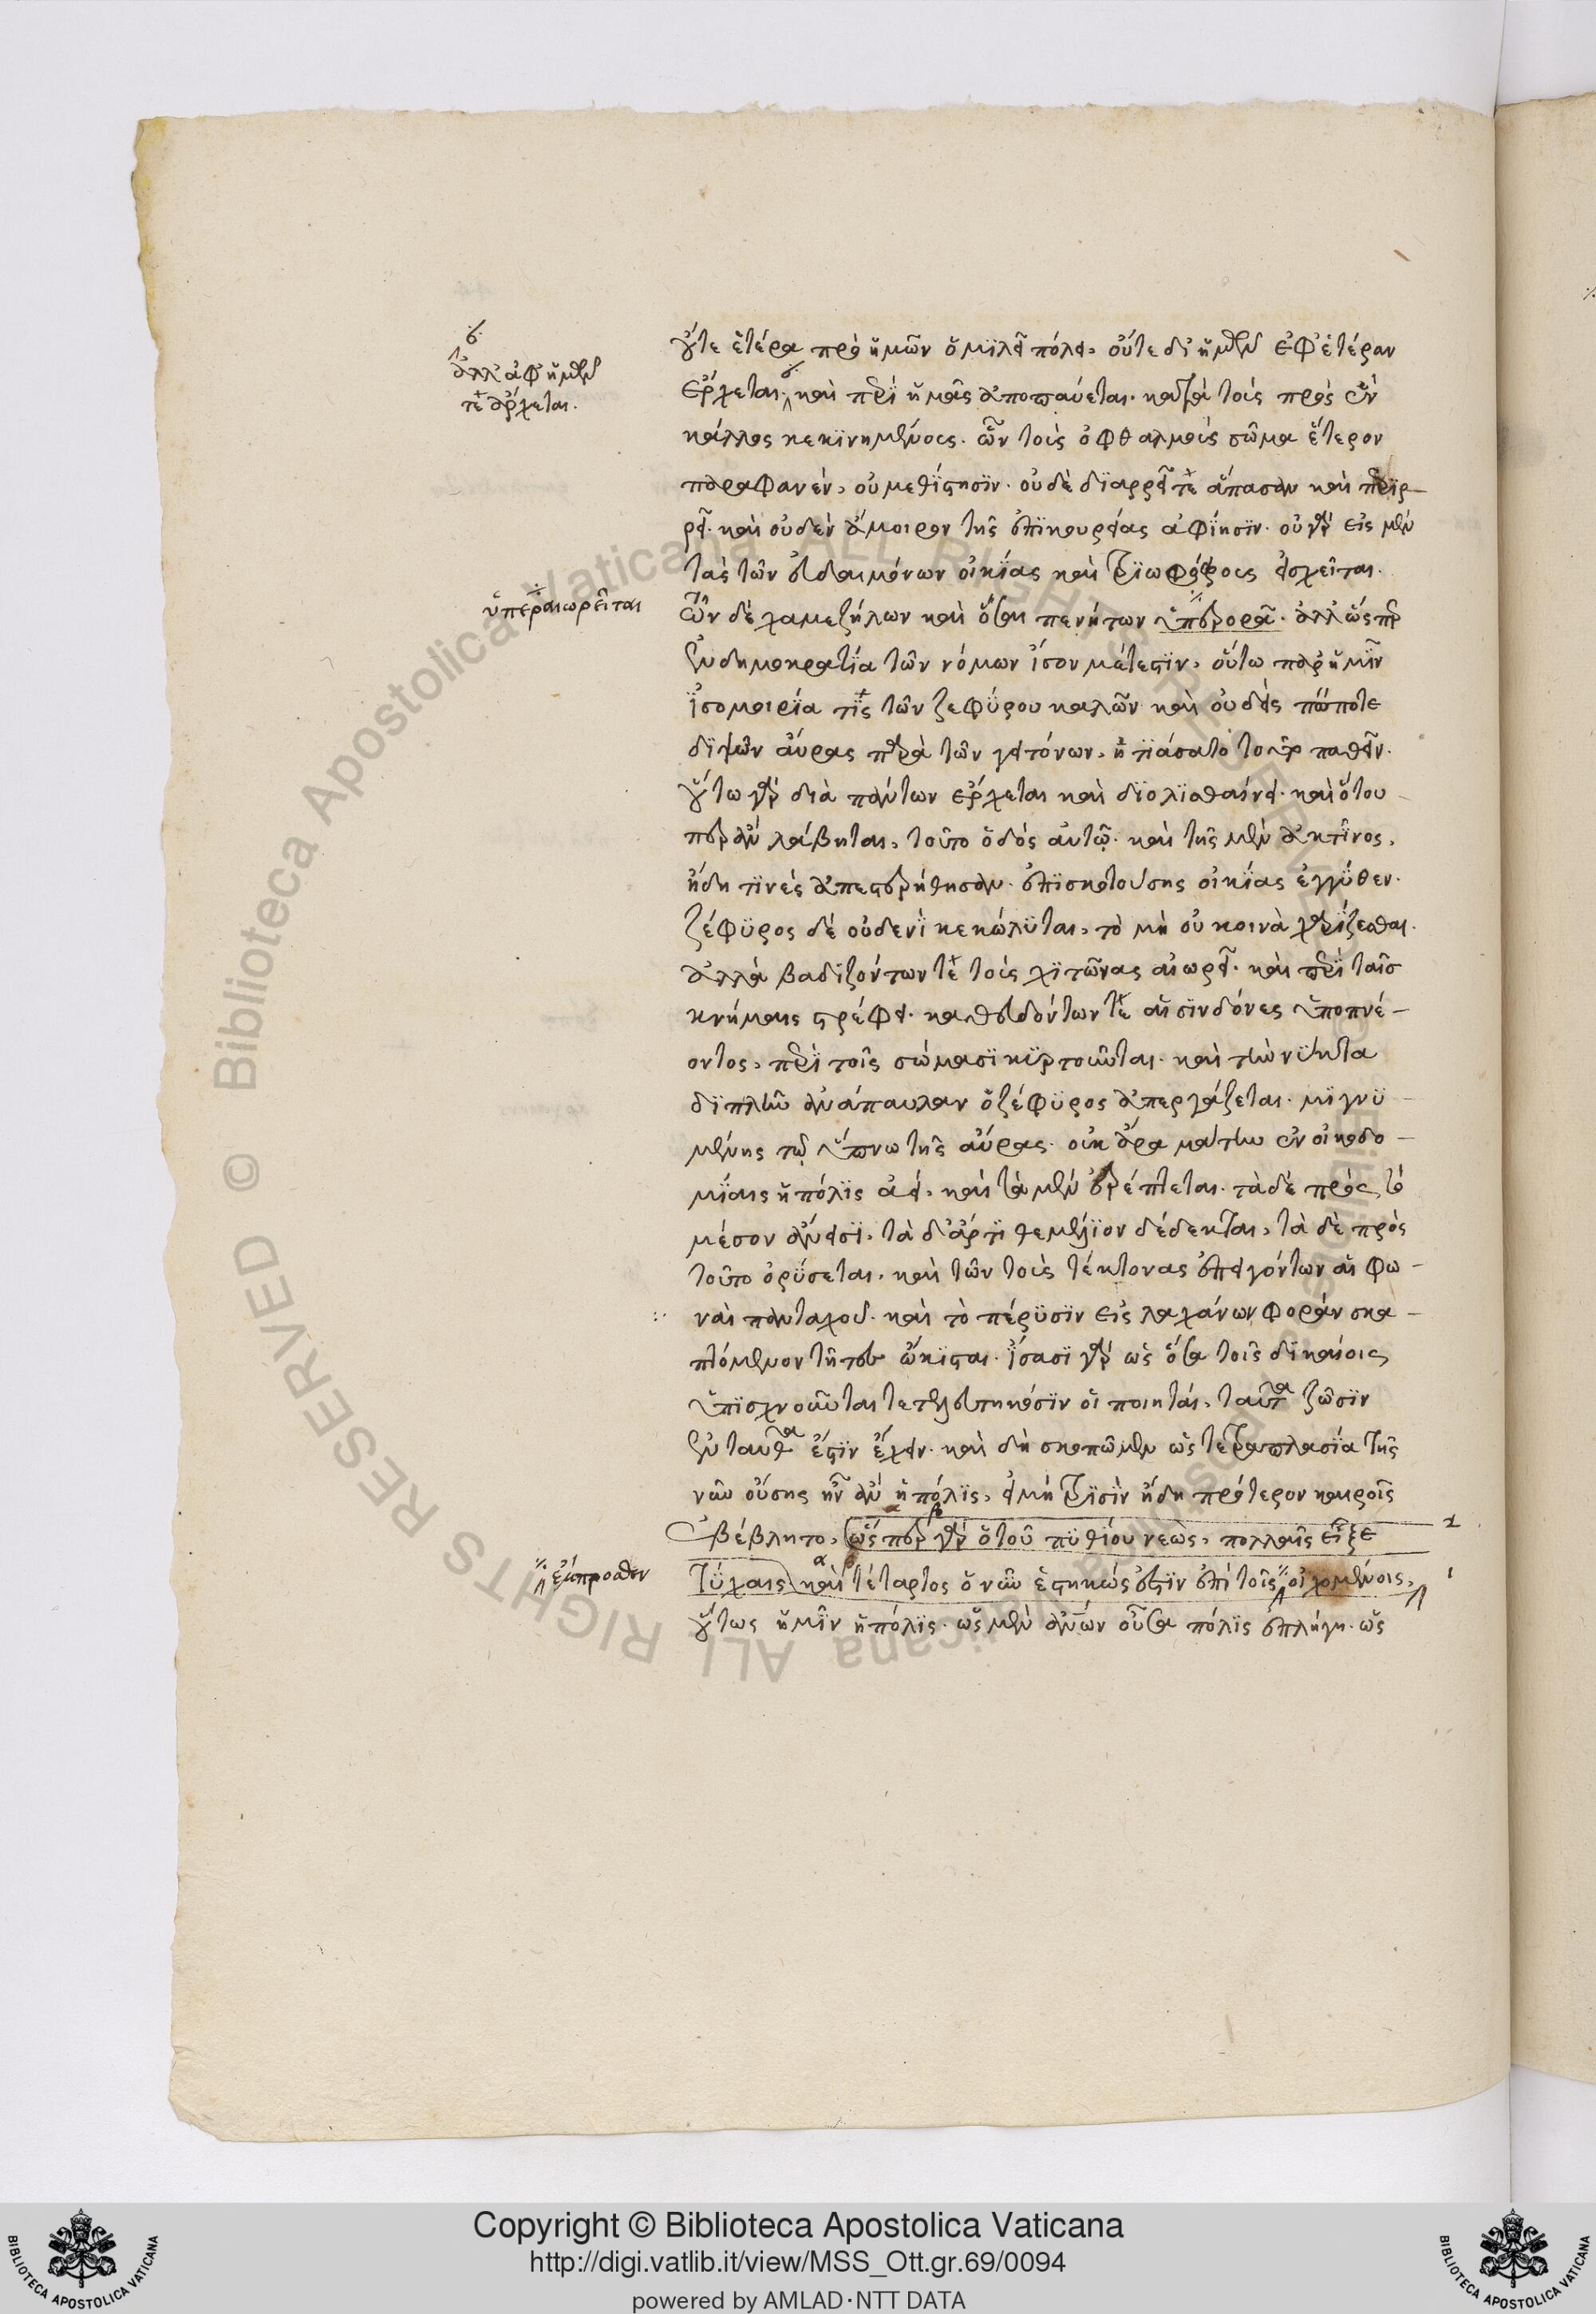 οὔτε ἑτέρα πρὸ ἡμῶν ὁμιλεῖ πόλει, οὔτε δι' ἡμῶν ἐφ' ἑτέραν
ἔρχεται· καὶ περὶ ἡμᾶς ἀποπαύεται· κατὰ τοὺς πρὸς ἓν
κάλλος κεκινημένους· ὧν τοὺς ὀφθαλμοὺς σῶμα ἕτερον
παραφανὲν, οὐ μεθίστησιν· οὐδὲ διαρρεῖ τε ἅπασαν καὶ περιρ-
ρεῖ· καὶ οὐδὲν ἄμοιρον τῆς ἐπικουρίας ἀφίησιν· οὐ γὰρ εἰς μὲν
τὰς τῶν εὐδαιμόνων οἰκίας καὶ τριωρόφους εἰσχεῖται·
τῶν δὲ χαμεζήλων καὶ ὅσαι πενήτων ὑπερορᾷ· ἀλλ' ὥσπερ
ἐν δημοκρατία τῶν νόμων ἴσον μέτεστιν, οὕτω παρ' ἡμῖν
ἰσομοιρία τίς τῶν ζεφύρου καλῶν καὶ οὐδεὶς πώποτε
διψῶν αὔρας παρὰ τῶν γειτόνων, ᾐτιάσατο παθεῖν·
οὕτω γὰρ διὰ πάντων ἔρχεται καὶ διολισθαίνει· καὶ ὅτου
περ ἂν λάβηται, τοῦτο ὁδὸς αὐτῷ· καὶ τῆς μὲν ἀκτῖνος,
ἤδη τινὲς ἀπεστερήθησαν· ἐπισκοτούσης οἰκίας ἐγγύθεν·
ζέφυρος δὲ οὐδενὶ κεκώλυται, τὸ μὴ οὐ κοινὰ χαρίζεσθαι·
ἀλλὰ βαδιζόντων τε τοὺς χιτῶνας αἰωρεῖ· καὶ περὶ ταῖς
κνήμαις στρέφει· καθευδόντων τε αἱ σινδόνες ὑποπνέ-
οντος, περὶ τοῖς σώμασι κυρτοῦνται· καὶ τὴν νύκτα
διπλῆν ἀνάπαυλαν ὁ ζέφυρος ἀπεργάζεται· μιγνυ-
μένης τῷ ὕπνω τῆς αὔρας· οὐκ ἄρα μάτην ἐν οἰκοδο-
μίαις ἡ πόλις ἀεὶ, καὶ τὰ μὲν ἐρέπτεται· τὰ δὲ πρὸς τὸ
μέσον ἄνεισι, τὰ δ' ἄρτι θεμέλιον δέδεκται, τὰ δὲ πρὸς
τοῦτο ὀρύσσεται, καὶ τῶν τοὺς τέκτονας ἐπειγόντων αἱ φω-
ναὶ πανταχοῦ· καὶ τὸ πέρυσιν εἰς λαχάνων φορὰν σκα-
πτόμενον τῆτες ᾤκισται· ἴσασι γὰρ ὡς ὅσα τοῖς δικαίοις
ὑπισχνοῦνται τετελευτηκόσιν οἱ ποιηταὶ, ταῦτα ζῶσιν
ἐνταῦθα ἔστιν ἔχειν· καὶ δὴ σκοπῶμεν ὡς τετραπλασία τῆς
νῦν οὔσης ἦν ἂν ἡ πόλις, εἰ μὴ τρισὶν ἤδη πρότερον καιροῖς
ἐβέβλητο, ὥσπερ γὰρ ὁ τοῦ πυθίου νεὼς, πολλαῖς εἶξε
τύχαις καὶ τέταρτος ὁ νῦν ἑστηκώς ἐστιν ἐπὶ τοῖς οἰχομένοις,
οὕτως ἡμῖν ἡ πόλις· ὡς μὲν οὖσα πόλις ἐπλήγη· ὡς
ἀλλ' ἀφ' ἡμῶν
τε ἄρχεται.
ὑπεραιωρεῖται
ἔμπροσθεν
Copyright © Biblioteca Apostolica Vaticana
http://digi.vatlib.it/view/MSS_Ott.gr.69/0094
powered by AMLAD·NTT DATA
BIBLIOTECA APOSTOLICA VATICANA
BIBLIOTECA APOSTOLICA VATICANA